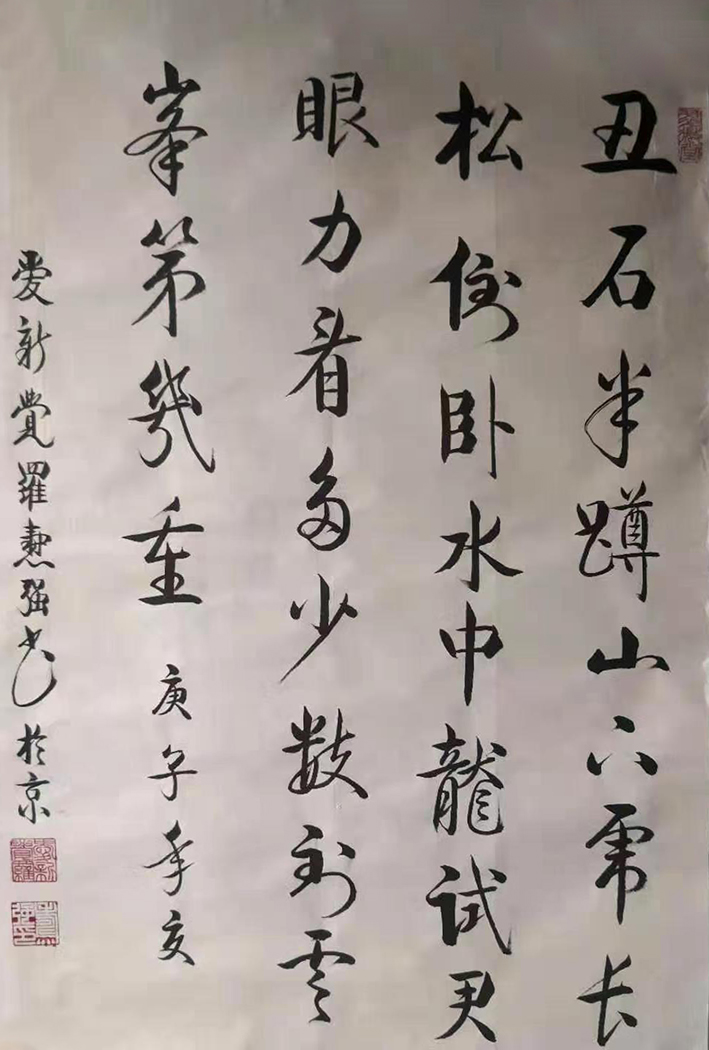 丑石半蹲山下虎长
松倒卧水中龍試君
眼力看多少数到雲
峯第幾重 庚子年夏
愛新覺羅强书於京